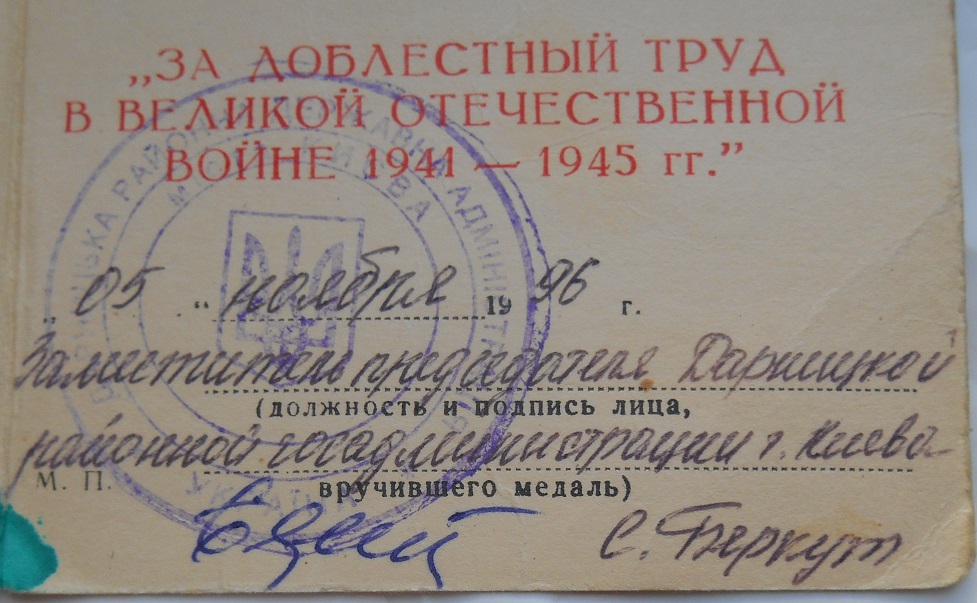 „ЗА ДОБЛЕСТНЫЙ ТРУД
В ВЕЛИКОЙ ОТЕЧЕСТВЕННОЙ
ВОЙНЕ 1941 — 1945 гг.”
„ 05 “ ноября 1996 г.
Заместитель председателя Дарницкой
(должность и подпись лица,
районной госадминистрации г. Киева
М. П. вручившего медаль)
С. Беркут
РАЙОННА ДЕРЖАВНА АДМІНІСТРАЦІЯ
М. КИЄВА
УКРАЇНА